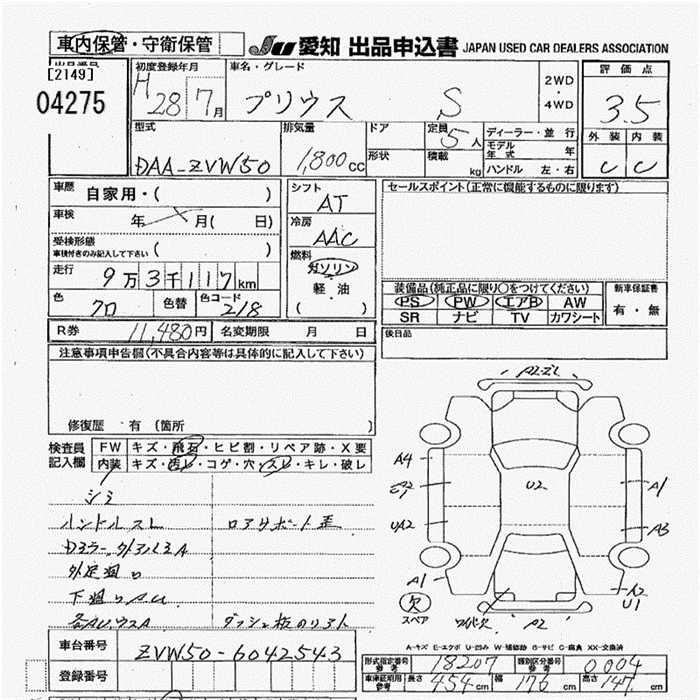 車内保管・守衛保管 JU 愛知 出品申込書 JAPAN USED CAR DEALERS ASSOCIATION
出品番号 初度登録年月 車名・グレード 2WD・4WD 評価点
[2149]
04275 H 28 7月 プリウス S 3.5
型式 排気量 ドア 定員 5人 ディーラー・並行 外装 内装
DAA-ZVW50 1,800cc 形状 積載 kg モデル年式 年 C C
ハンドル 左・右
車歴 自家用・( ) シフト AT セールスポイント(正常に機能するものに限ります)
車検 年 月( 日) 冷房 AAC
受検形態 ( )
車検付きのみ記入して下さい
燃料 ガソリン
走行 9万3千117km 軽・油 装備品(純正品に限り○をつけてください) 新車保証書
色 クロ 色替 色コード 218 ( ) PS PW エアB AW 有・無
SR ナビ TV カワシート
R券 11,480円 名変期限 月 日 後日品
注意事項申告欄(不具合内容等は具体的に記入して下さい)
修復歴 有(箇所 )
検査員記入欄 FW キズ・飛石・ヒビ割・リペア跡・X要
内装 キズ・汚レ・コゲ・穴・スレ・キレ・破レ
シミ
ハンドルスレ ロアサポート歪
外廻り
下廻り
A4 U2 A1
UA2 A3
A1 A2
U1
欠 スペア ワイパー欠 A2
A-キズ E-エクボ U-凹み W-補修跡 S-サビ C-腐食 XX-交換済
車台番号 ZVW50-6042543
登録番号
型式指定番号 参考 18207 類別区分番号 参考 0004
車庫証明用 参考 長さ 454cm 幅 176cm 高さ 147cm